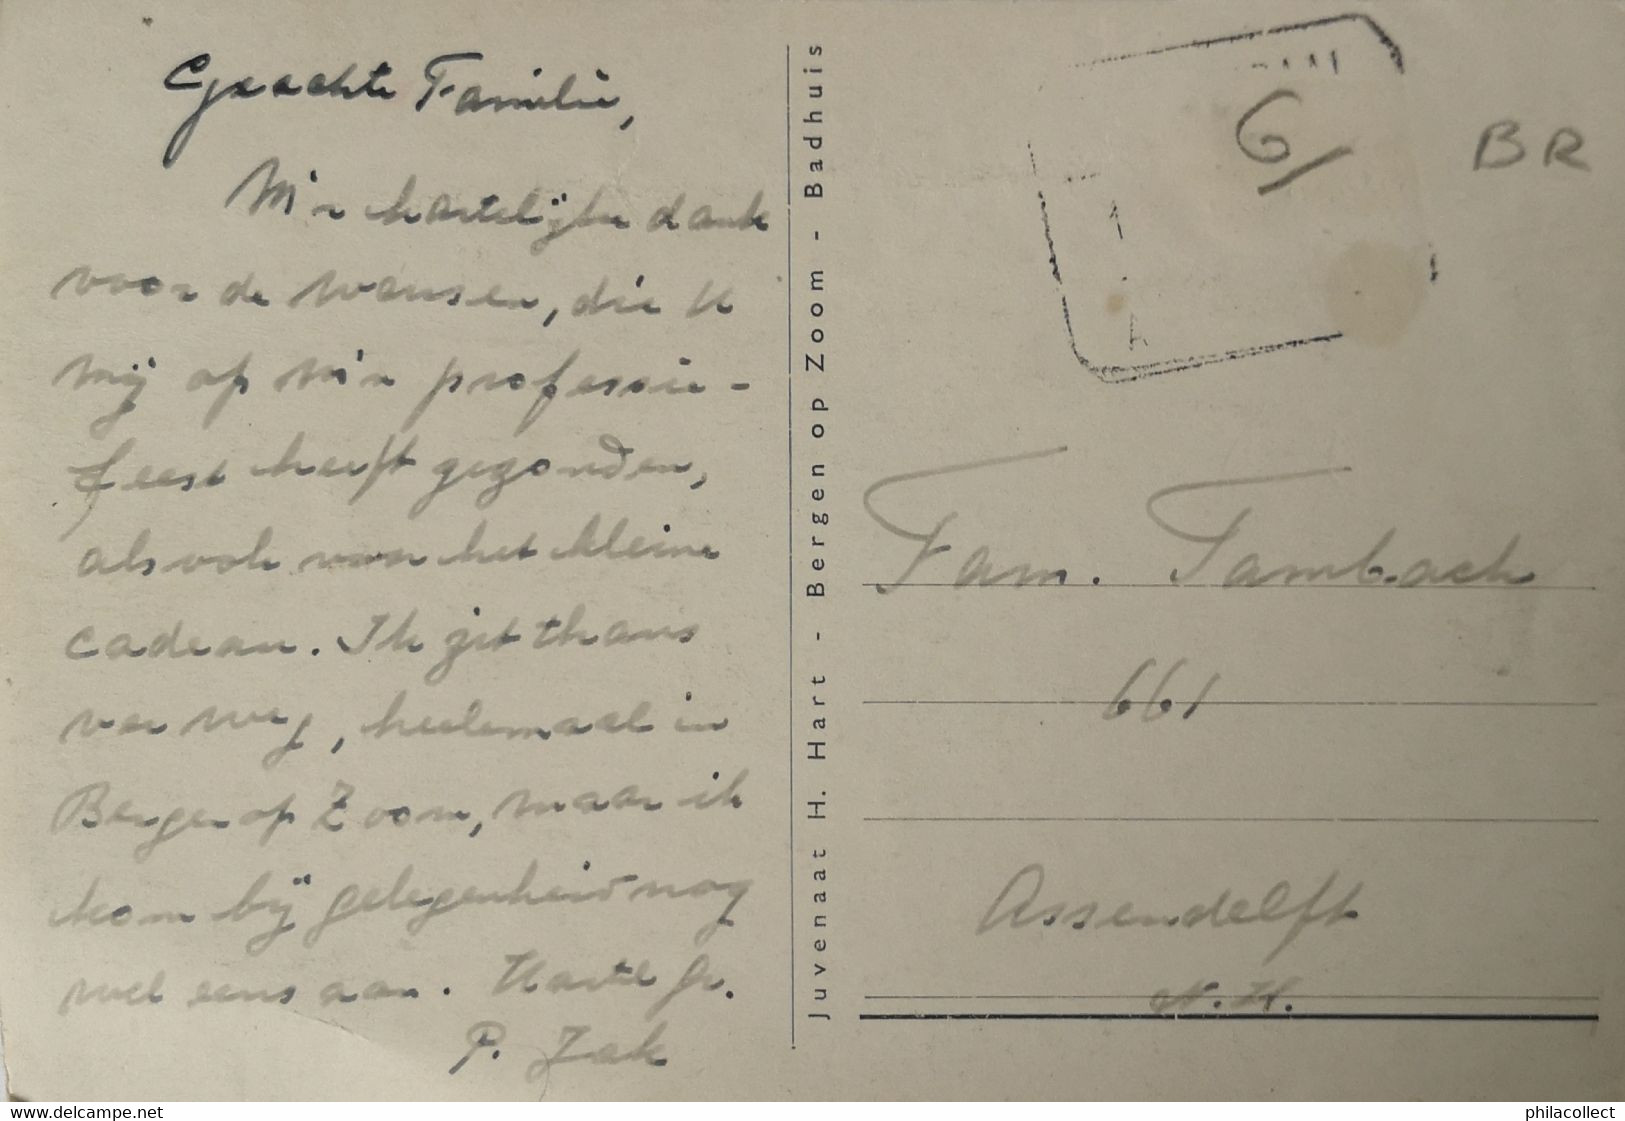 Geachte Familie,
M'n hartelijke dank
voor de wensen, die U
mij op m'n professie-
feest heeft gezonden,
als ook voor het kleine
cadeau. Ik zit thans
ver weg, heelemaal in
Bergen op Zoom, maar ik
kom bij gelegenheid nog
wel eens aan. Hartl gr.
P. Zak
Juvenaat H. Hart - Bergen op Zoom - Badhuis
6/
BR
1
A
Fam. Tambach
661
Assendelft
N.H.
www.delcampe.net
philacollect